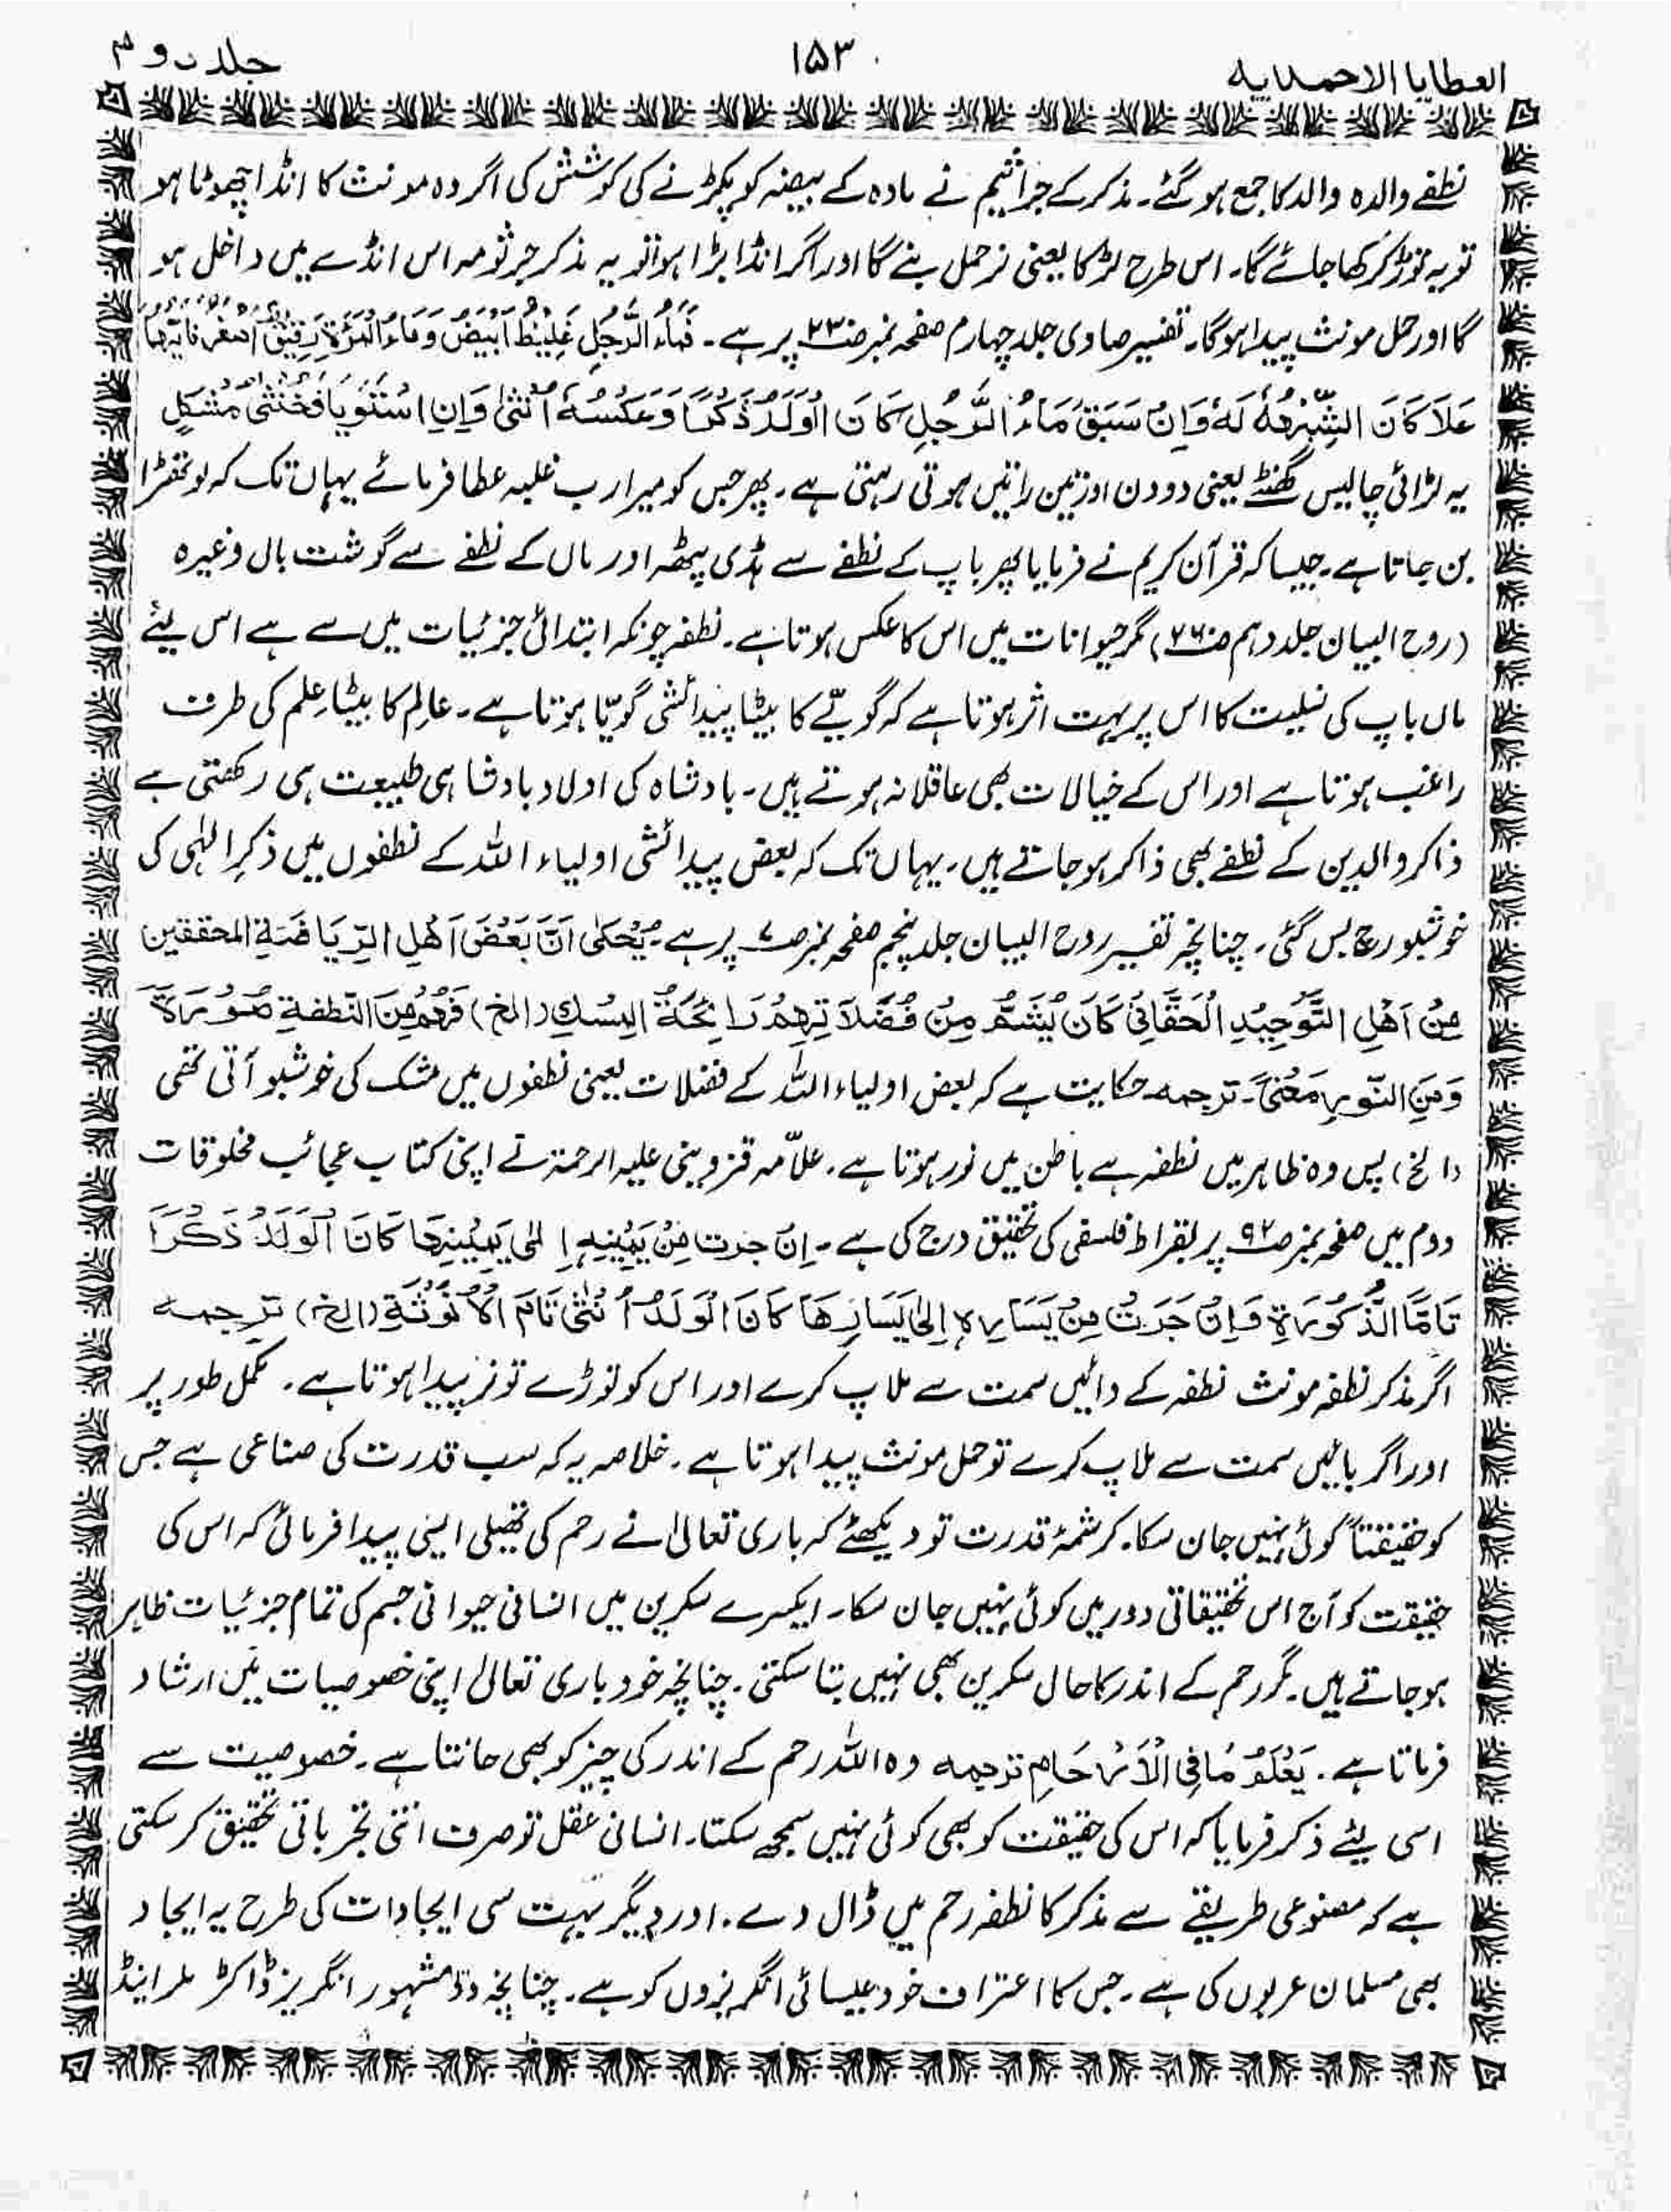 العطایا الاحمدیه
۱۵۳
جلد دوم
نطفے والدہ والد کا جمع ہو گئے۔ مذکر کے جراثیم نے مادہ کے بیضہ کو پکڑنے کی کوشش کی اگر وہ مونث کا انڈا چھوٹا ہو
تو یہ توڑ کر کھا جائے گا۔ اس طرح لڑکا یعنی نر حمل بنے گا اور اگر انڈا بڑا ہوا تو یہ مذکر جرثومہ اس انڈے میں داخل ہو
گا اور حمل مونث پیدا ہوگا۔ تفسیر صاوی جلد چہارم صفحہ نمبر ص۲۳ پر ہے۔ فَمَاءُ الرَّجُلِ غَلِیْظٌ اَبْیَضُ وَمَاءُ الْمَرْءَۃِ رَقِیْقٌ اَصْفَرُ فَاَیُّھُمَا
عَلَا کَانَ الشِّبْهُ لَهٗ وَاِنْ سَبَقَ مَاءُ الرَّجُلِ کَانَ الْوَلَدُ ذَکَرًا وَعَکْسُهٗ اُنْثٰی وَاِنِ اسْتَوَیَا فَخُنْثٰی مُشْکِلٌ
یہ لڑائی چالیس گھنٹے یعنی دو دن اور تین راتیں ہوتی رہتی ہے۔ پھر جس کو میرا رب غلبہ عطا فرمائے یہاں تک کہ لوتھڑا
بن جاتا ہے۔ جیسا کہ قرآن کریم نے فرمایا پھر باپ کے نطفے سے ہڈی پیٹھ اور ماں کے نطفے سے گوشت بال وغیرہ
(روح البیان جلد دہم ص۲۷۶) مگر حیوانات میں اس کا عکس ہوتا ہے۔ نطفہ چونکہ ابتدائی جزئیات میں سے ہے اس لیئے
ماں باپ کی نسلیت کا اس پر بہت اثر ہوتا ہے کہ گویّے کا بیٹا پیدائشی گویّا ہوتا ہے۔ عالِم کا بیٹا عِلم کی طرف
راغب ہوتا ہے اور اس کے خیالات بھی عاقلانہ ہوتے ہیں۔ بادشاہ کی اولاد بادشاہی طبیعت ہی رکھتی ہے
ذاکر والدین کے نطفے بھی ذاکر ہو جاتے ہیں۔ یہاں تک کہ بعض پیدائشی اولیاء اللہ کے نطفوں میں ذکرِ الٰہی کی
خوشبو رچ بس گئی۔ چنانچہ تفسیر روح البیان جلد پنجم صفحہ نمبر ص۷ پر ہے۔ یُحْکٰی اَنَّ بَعْضَ اَهْلِ الرِّیَاضَةِ المحققین
مِنْ اَهْلِ التَّوْحِیْدِ الْحَقَّانِیْ کَانَ یُشَمُّ مِنْ فُضَلَاتِهِمْ رَائِحَةُ الْمِسْكِ (الخ) فَهُمْ مِنَ النّطفةِ صُوْرَةً
وَمِنَ النّورِ مَعْنًی۔ ترجمہ حکایت ہے کہ بعض اولیاء اللہ کے فضلات یعنی نطفوں میں مشک کی خوشبو آتی تھی
(الخ) پس وہ ظاہر میں نطفہ ہے باطن میں نور ہوتا ہے۔ علّامہ قزوینی علیہ الرحمۃ نے اپنی کتاب عجائب مخلوقات
دوم میں صفحہ نمبر ص۹۲ پر بقراط فلسفی کی تحقیق درج کی ہے۔ اِنْ جرت مِنْ یَمِیْنِهٖ اِلٰی یَمِیْنِهَا کَانَ الْوَلَدُ ذَکَرًا
تَامَّا الذُّکُوْرَةِ وَاِنْ جَرَتْ مِنْ یَسَارِهٖ اِلٰی یَسَارِهَا کَانَ الْوَلَدُ اُنْثٰی تَامَ الْاُنُوْثَةِ (الخ) ترجمہ
اگر مذکر نطفہ مونث نطفہ کے دائیں سمت سے ملاپ کرے اور اس کو توڑے تو نر پیدا ہوتا ہے۔ مکمل طور پر
اور اگر بائیں سمت سے ملاپ کرے تو حمل مونث پیدا ہوتا ہے۔ خلاصہ یہ کہ سب قدرت کی صناعی ہے جس
کو حقیقتاً کوئی نہیں جان سکا۔ کرشمۂ قدرت تو دیکھئے کہ باری تعالیٰ نے رحم کی تھیلی ایسی پیدا فرمائی کہ اس کی
حقیقت کو آج اس تحقیقاتی دور میں کوئی نہیں جان سکا۔ ایکسرے سکرین میں انسانی حیوانی جسم کی تمام جزئیات ظاہر
ہو جاتے ہیں۔ مگر رحم کے اندر کا حال سکرین بھی نہیں بتا سکتی۔ چنانچہ خود باری تعالیٰ اپنی خصوصیات میں ارشاد
فرماتا ہے۔ یَعْلَمُ مَا فِی الْاَرْحَامِ ترجمہ وہ اللہ رحم کے اندر کی چیز کو بھی جانتا ہے۔ خصوصیت سے
اسی لیئے ذکر فرمایا کہ اس کی حقیقت کو بھی کوئی نہیں سمجھ سکتا۔ انسانی عقل تو صرف اتنی تجرباتی تحقیق کر سکتی
ہے کہ مصنوعی طریقے سے مذکر کا نطفہ رحم میں ڈال دے۔ اور دیگر بہت سی ایجادات کی طرح یہ ایجاد
بھی مسلمان عربوں کی ہے۔ جس کا اعتراف خود عیسائی انگریزوں کو ہے۔ چنانچہ دو مشہور انگریز ڈاکٹر ملر اینڈ